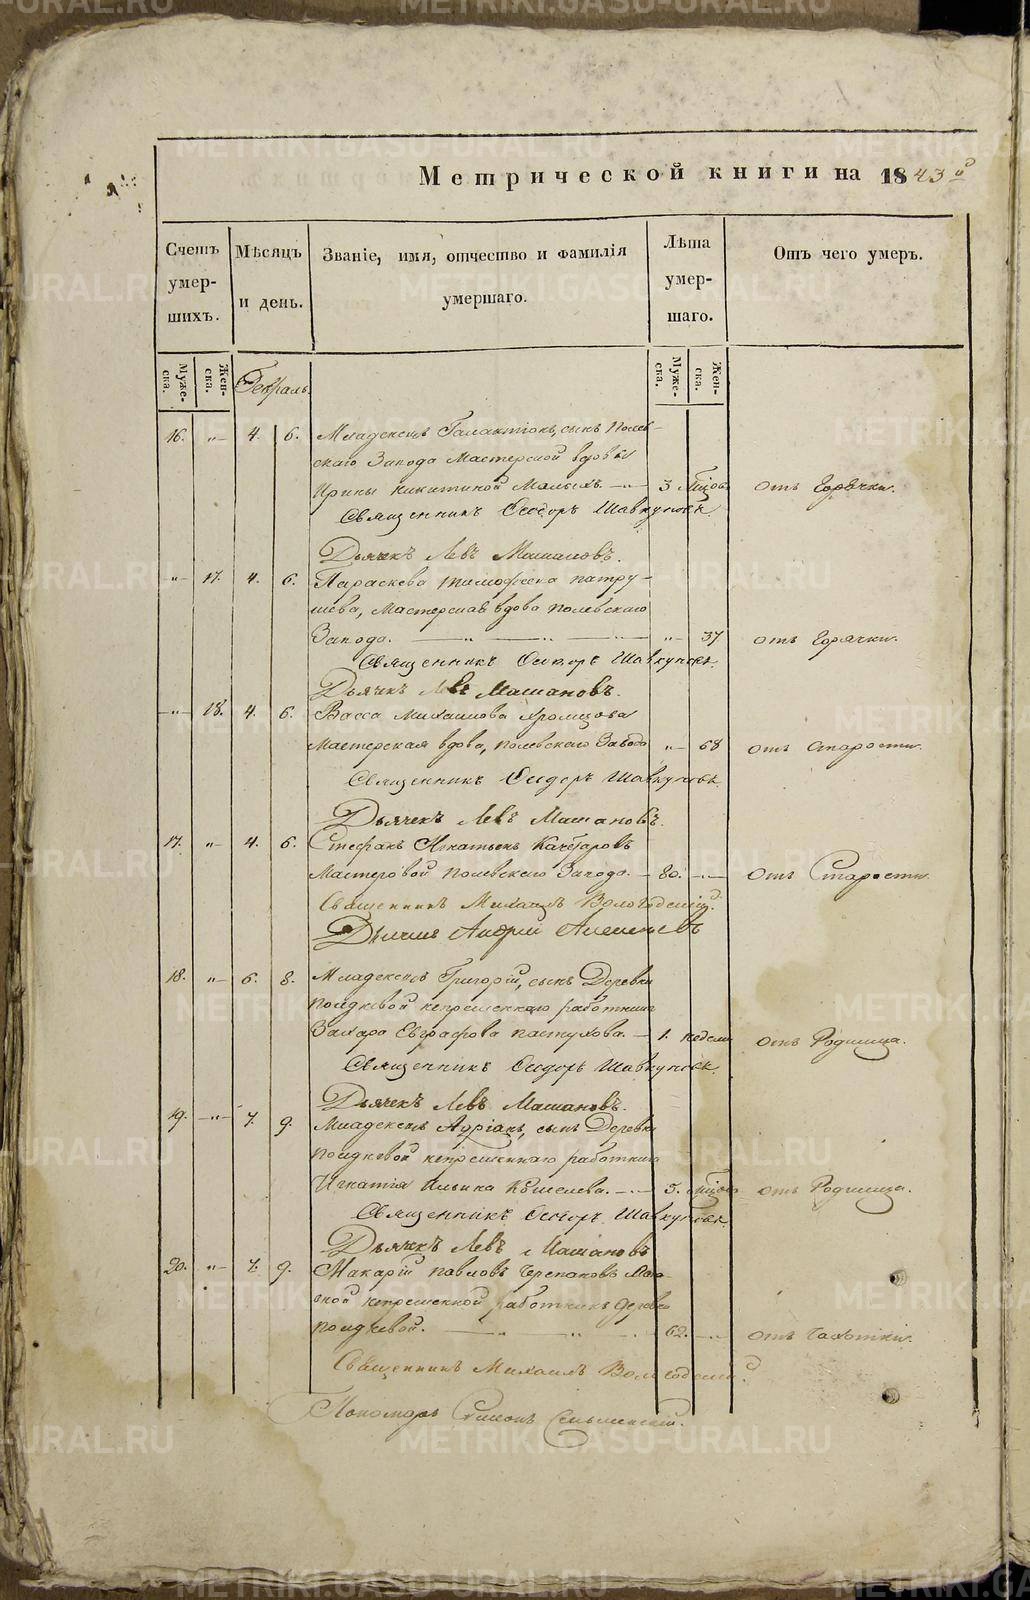 Метрической книги на 1843й
Счетъ умер- шихъ.
Мѣсяцъ и день.
Званіе, имя, отчество и фамилія умершаго.
Лѣта умер- шаго.
Отъ чего умеръ.
Муже- ска.
Жен- ска.
Февраль.
Муже- ска.
Жен- ска.
16. „ 4. 6. Младенецъ Галактіонъ, сынъ Полев-
скаго Завода Мастерской вдовы
Ирины Никитиной Малыхъ. — 3 мѣсяц. отъ Горячки.
Священникъ Феодоръ Шавкуновъ
Дьячекъ Левъ Машановъ.
„ 17. 4. 6. Параскева Тимофеева Патру-
шева, Мастерская вдова Полевскаго
Завода. — „ — „ — „ 37 отъ Горячки.
Священникъ Феодоръ Шавкуновъ.
Дьячекъ Левъ Машановъ.
„ 18. 4. 6. Васса Михаилова Хромцова
Мастерская вдова, Полевскаго Завода „ 68 отъ Старости.
Священникъ Феодоръ Шавкуновъ.
Дьячекъ Левъ Машановъ.
17. „ 4. 6. Стефанъ Игнатьевъ
Мастеровой Полевскаго Завода. — 80. — отъ Старости.
Священникъ Михаилъ Вологодскій.
Дьячекъ Андрей
18. „ 6. 8. Младенецъ Григорій, сынъ Деревни
непременнаго работника
Захара Евграфова Пастухова. — 1. недели отъ Родимца.
Священникъ Феодоръ Шавкуновъ.
Дьячекъ Левъ Машановъ.
19. „ 7. 9. Младенецъ Адріанъ, сынъ Деревни
непременнаго работника
Игнатія Ильина Кошелева. — 3. мѣсяц. отъ Родимца.
Священникъ Феодоръ Шавкуновъ.
Дьячекъ Левъ Машановъ
20. „ 7. 9. Макарій Павловъ Черепановъ
непременной работникъ Деревни
— „ „ 62. — отъ Чахотки.
Священникъ Михаилъ Вологодскій.
Пономарь Симеонъ
METRIKI.GASO-URAL.RU